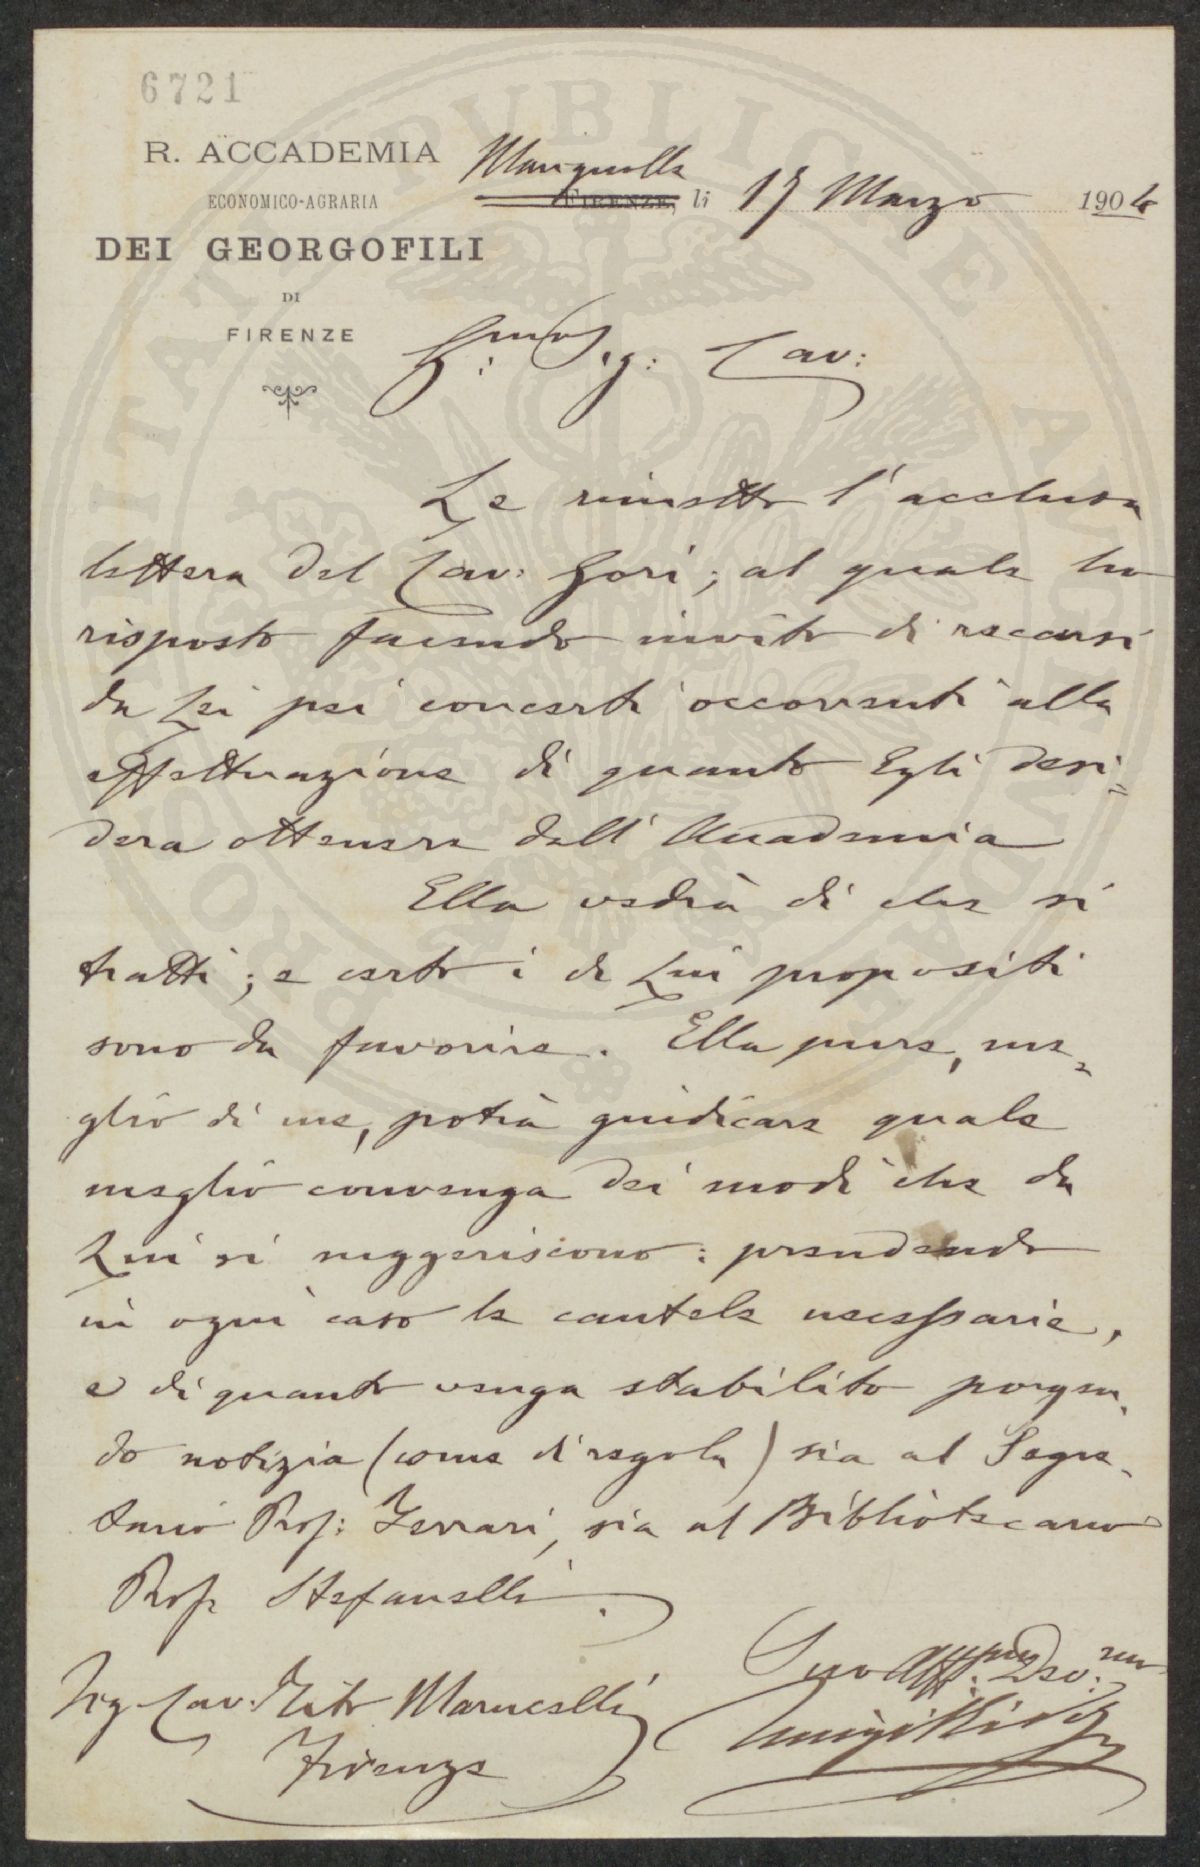 6721
R. ACCADEMIA
ECONOMICO-AGRARIA
DEI GEORGOFILI
DI
FIRENZE
Marignolle
FIRENZE, li 17 Marzo 1904
Sig: Cav:
Le rimetto l'acclusa
lettera del Cav: Gori; al quale ho
risposto facendo invito di recarsi
da Lei pei concerti occorrenti alla
effettuazione di quanto Egli desi=
dera ottenere dall'Accademia
Ella vedrà di che si
tratti; e certo i di Lui propositi
sono da favorire. Ella pure, me-
glio di me, potrà giudicare quale
meglio convenga dei modi che da
Lui si suggeriscono: prendendo
in ogni caso le cautele necessarie,
e di quanto venga stabilito porgen-
do notizia (come di regola) sia al Segre-
tario Prof: Ferrari, sia al Bibliotecario
Prof. Stefanelli.
Suo Aff.mo Dev.mo
Luigi
Sig. Cav. Tito Marucelli
Firenze
PROSPERITATI PVBLICAE AVGENDAE